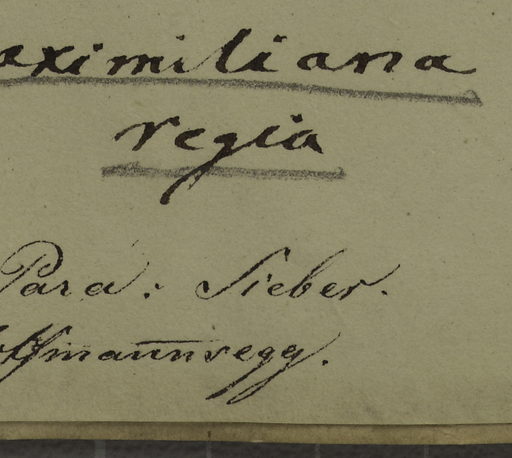 aximiliana
regia
Pará: Sieber.
offmannsegg.